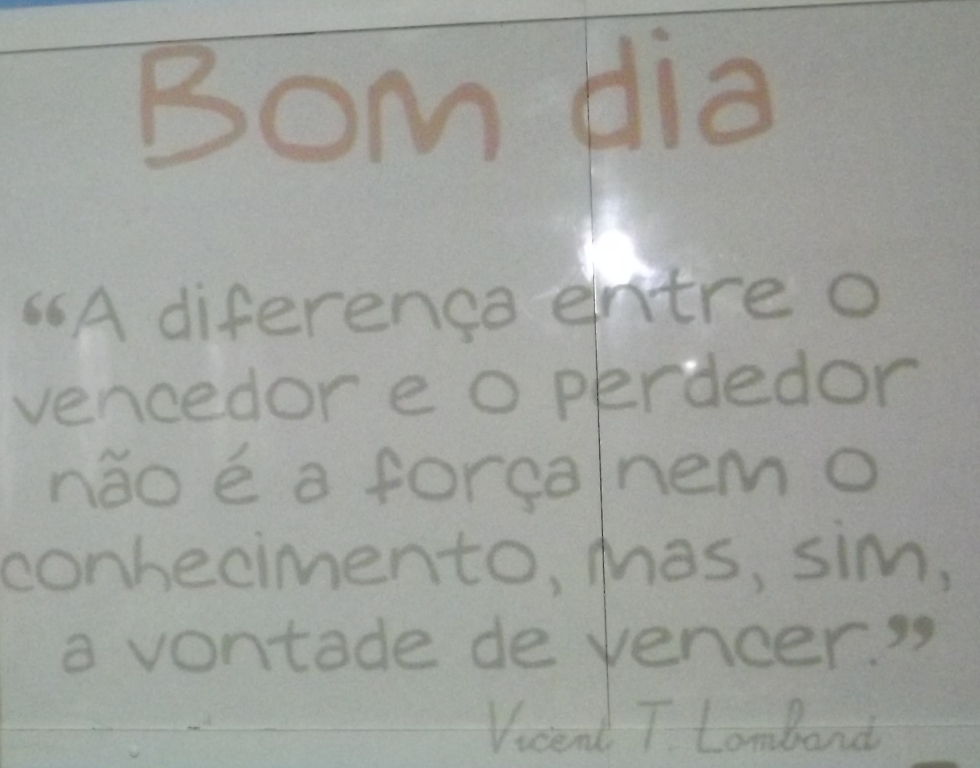 Bom dia
“A diferença entre o
vencedor e o perdedor
não é a força nem o
conhecimento, mas, sim,
a vontade de vencer.”
Vicent T. Lombard